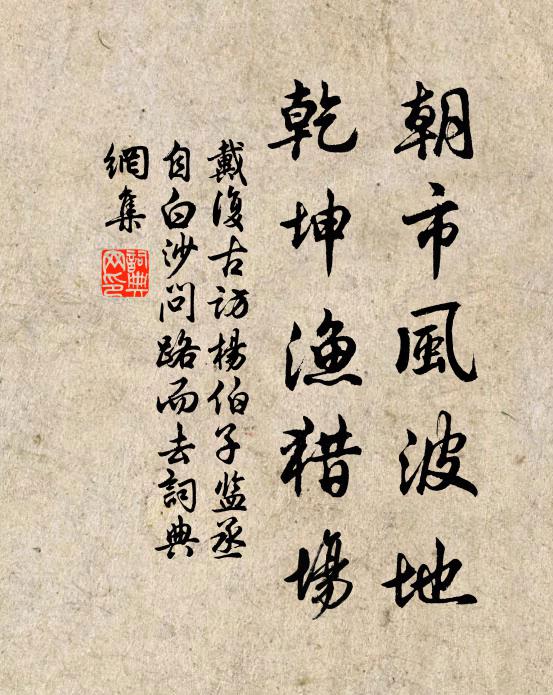 朝市風波地
乾坤漁猎場
戴復古訪楊伯子監丞
自白沙問路而去詞典
網集
詞典
网印